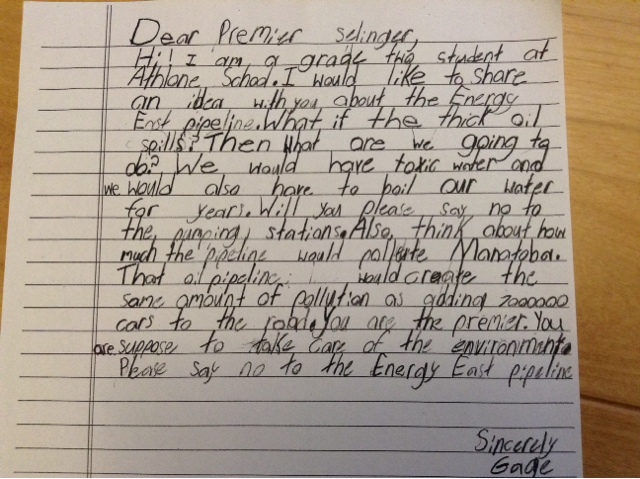 Dear Premier selinger,
Hi! I am a grade two student at
Athlone School. I would like to share
an idea with you about the Energy
East pipeline. What if the thick oil
spills? Then what are we going to
do? We would have toxic water and
we would also have to boil our water
for years. Will you please say no to
the pumping stations. Also, think about how
much the pipeline would pollute Manatoba.
That oil pipeline would create the
same amount of pollution as adding 7000000
cars to the road. You are the premier. You
are suppose to take care of the environment.
Please say no to the Energy East pipeline
Sincerely
Gage